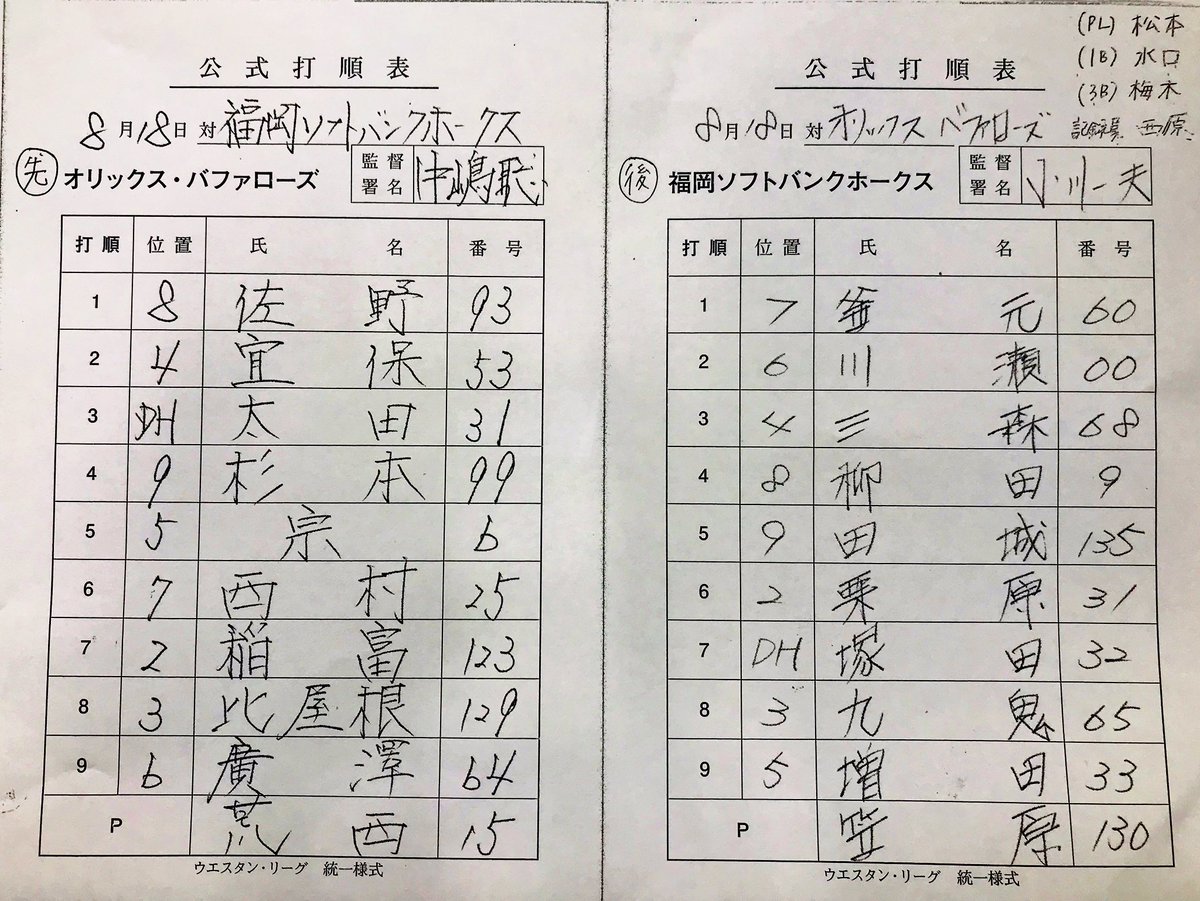 公式打順表
8月18日 対 福岡ソフトバンクホークス
先 オリックス・バファローズ 監督署名 中嶋聡
打順 位置 氏名 番号
1 8 佐野 93
2 4 宜保 53
3 DH 太田 31
4 9 杉本 99
5 5 宗 6
6 7 西村 25
7 2 稲富 123
8 3 比屋根 129
9 6 廣澤 64
P 荒西 15
ウエスタン・リーグ 統一様式
(PL) 松本
(1B) 水口
(3B) 梅木
記録員 西原
公式打順表
8月18日 対 オリックス バファローズ
後 福岡ソフトバンクホークス 監督署名 小川一夫
打順 位置 氏名 番号
1 7 釜元 60
2 6 川瀬 00
3 4 三森 68
4 8 柳田 9
5 9 田城 135
6 2 栗原 31
7 DH 塚田 32
8 3 九鬼 65
9 5 増田 33
P 笠原 130
ウエスタン・リーグ 統一様式